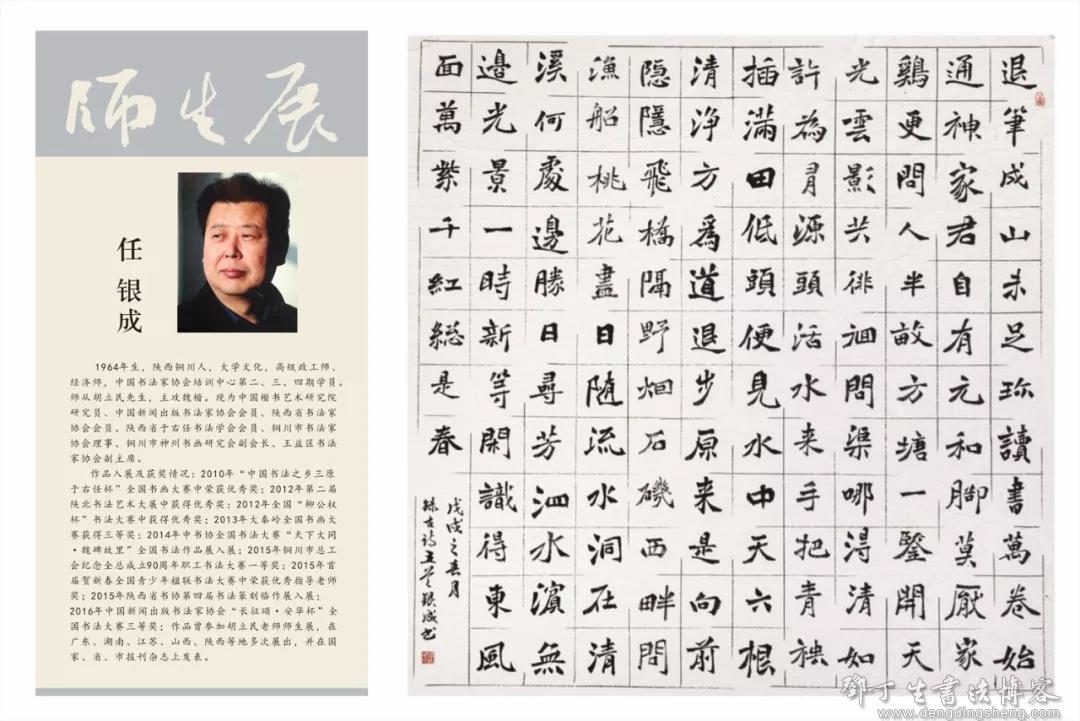 师生展
任银成
1964年生,陕西铜川人,大学文化,高级政工师、
经济师,中国书法家协会培训中心第二、三、四期学员。
师从胡立民先生,主攻魏楷。现为中国楷书艺术研究院
研究员、中国新闻出版书法家协会会员、陕西省书法家
协会会员、陕西省于右任书法学会会员、铜川市书法家
协会理事、铜川市神州书画研究会副会长、王益区书法
家协会副主席。
作品入展及获奖情况:2010年“中国书法之乡三原
于右任杯”全国书画大赛中荣获优秀奖;2012年第二届
陕北书法艺术大展中获得优秀奖;2012年全国“柳公权
杯”书法大赛中获得优秀奖;2013年大秦岭全国书画大
赛获得三等奖;2014年中书协全国书法大赛“天下大同
·魏碑故里”全国书法作品展入展;2015年铜川市总工
会纪念全总成立90周年职工书法大赛一等奖;2015年首
届贺新春全国青少年楹联书法大赛中荣获优秀指导老师
奖;2015年陕西省书协第四届书法篆刻临作展入展;
2016年中国新闻出版书法家协会“长征颂·安华杯”全
国书法大赛三等奖;作品曾参加胡立民老师师生展,在
广东、湖南、江苏、山西、陕西等地多次展出,并在国
家、省、市报刊杂志上发表。
退筆成山未足珎讀書萬卷始
通神家君自有元和脚莫厭家
鷄更問人半畝方塘一鑒開天
光雲影共徘徊問渠哪得清如
許為有源頭活水来手把青秧
插滿田低頭便見水中天六根
清浄方爲道退步原来是向前
隐隱飛橋隔野烟石磯西畔問
漁船桃花盡日随流水洞在清
溪何處邊勝日尋芳泗水濱無
邊光景一時新等閑識得東風
面萬紫千紅總是春
戊戌之春月
録古詩五首银成书
鄧丁生書法博客
www.dengdingsheng.com